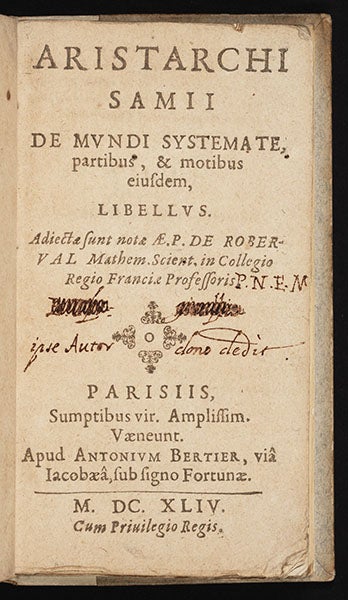 ARISTARCHI
SAMII
DE MVNDI SYSTEMATE,
partibus, & motibus
eiusdem,
LIBELLVS.
Adiectæ sunt notæ Æ.P. DE ROBER-
VAL Mathem. Scient. in Collegio
Regio Franciæ Professoris P. N. E. M
ipse Autor dono dedit
PARISIIS,
Sumptibus vir. Amplissim.
Væneunt.
Apud ANTONIVM BERTIER, viâ
Iacobæâ, sub signo Fortunæ.
M. DC. XLIV.
Cum Priuilegio Regis.